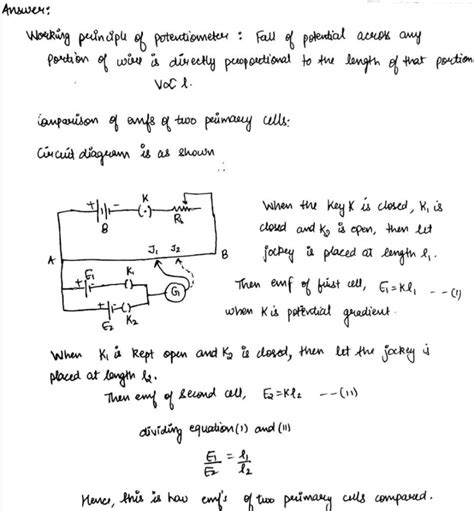 Answer:
Working principle of potentiometer : Fall of potential across any
portion of wire is directly proportional to the length of that portion
V∝ l.
Comparison of emfs of two primary cells:
Circuit diagram is as shown
∴
+ - K
B R₁
A J₁ J₂ B
E₁ K₁
+ - G
E₂ K₂
When the key K is closed, K₁ is
closed and K₂ is open, then let
jockey is placed at length l₁.
Then emf of first cell, E₁=Kl₁ --(1)
when K is potential gradient.
When K₁ is kept open and K₂ is closed, then let the jockey is
placed at length l₂.
Then emf of second cell, E₂=Kl₂ --(11)
dividing equation(1) and (11)
E₁/E₂ = l₁/l₂
Hence, this is how emf's of two primary cells compared.